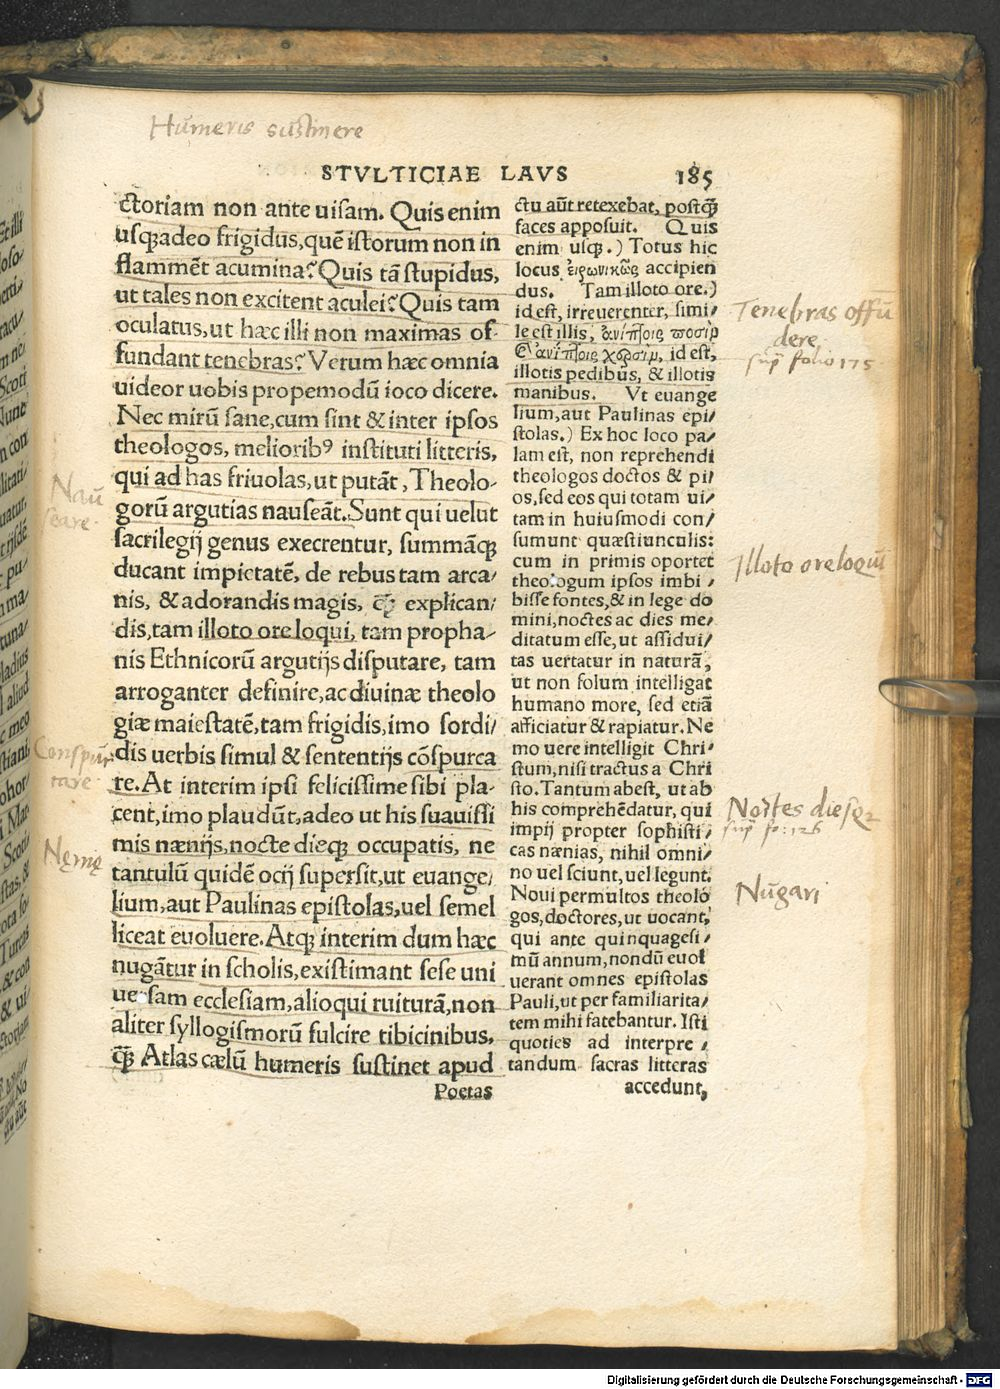 Humeris sustinere
STVLTICIAE LAVS 185
ctoriam non ante uisam. Quis enim
usq́ꝫadeo frigidus,quē istorum non in
flammēt acumina? Quis tā stupidus,
ut tales non excitent aculei? Quis tam
oculatus,ut hæc illi non maximas of-
fundant tenebras? Verum hæc omnia
uideor uobis propemodū ioco dicere.
Nec mirū sane,cum sint & inter ipsos
theologos, meliorib⁹ instituti litteris,
qui ad has friuolas,ut putāt, Theolo-
gorū argutias nauseāt. Sunt qui uelut
sacrilegij genus execrentur, summāq́ꝫ
ducant impietatē, de rebus tam arca/
nis, & adorandis magis, q̄ꝫ explican/
dis,tam illoto ore loqui, tam propha-
nis Ethnicorū argutijs disputare, tam
arroganter definire,ac diuinæ theolo
giæ maiestatē,tam frigidis,imo sordi/
dis uerbis simul & sententijs cōspurca
re. At interim ipsi felicissime sibi pla-
cent,imo plaudūt,adeo ut his suauissi
mis nænijs,nocte dieq́ꝫ occupatis, ne
tantulū quidē ocij supersit,ut euange/
lium,aut Paulinas epistolas,uel semel
liceat euoluere. Atq́ꝫ interim dum hæc
nugātur in scholis,existimant sese uni
uersam ecclesiam,alioqui ruiturā,non
aliter syllogismorū fulcire tibicinibus,
q̄ꝫ Atlas cælū humeris sustinet apud
Poetas
ctu aūt retexebat, postq̄ꝫ
faces apposuit. Quis
enim usq́ꝫ.) Totus hic
locus εἰρωνικῶς accipien
dus. Tam illoto ore.)
id est, irreuerenter, simi/
le est illis, ἀνίπτοις ποσὶρ
& ἀνίπτοις χερσὶμ, id est,
illotis pedibus, & illotis
manibus. Vt euange
lium,aut Paulinas epi/
stolas.) Ex hoc loco pa/
lam est, non reprehendi
theologos doctos & pi/
os,sed eos qui totam ui/
tam in huiusmodi con/
sumunt quæstiunculis:
cum in primis oportet
theologum ipsos imbi/
bisse fontes,& in lege do
mini,noctes ac dies me/
ditatum esse,ut assidui/
tas uertatur in naturā,
ut non solum intelligat
humano more, sed etiā
afficiatur & rapiatur. Ne
mo uere intelligit Chri/
stum,nisi tractus a Chri
sto. Tantum abest, ut ab
his comprehēdatur, qui
impij propter sophisti/
cas nænias, nihil omni/
no uel sciunt,uel legunt.
Noui permultos theolo
gos,doctores,ut uocant,
qui ante quinquagesi/
mū annum,nondū euol
uerant omnes epistolas
Pauli,ut per familiarita/
tem mihi fatebantur. Isti
quoties ad interpre/
tandum sacras litteras
accedunt,
Nau
seare
Conspur
care
Nęnię
Tenebras offū
dere
sup̄ folio 175
Illoto ore loquī
Noctes dieſqꝫ
sup̄ fo: 126
Nugari
Digitalisierung gefördert durch die Deutsche Forschungsgemeinschaft - DFG